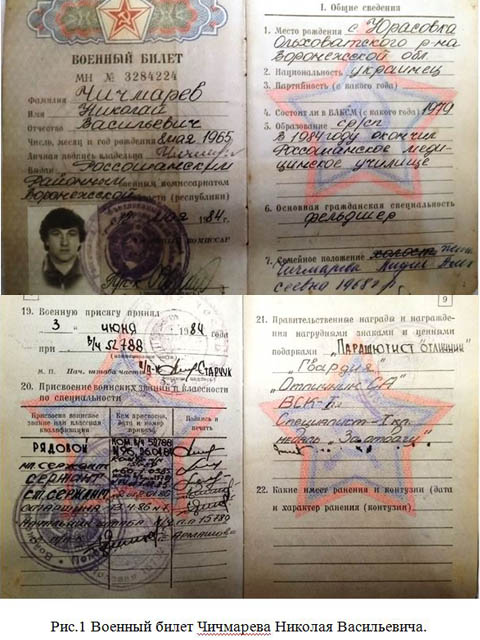 ВОЕННЫЙ БИЛЕТ
МН № 3284224
Фамилия Чичмарев
Имя Николай
Отчество Васильевич
Число, месяц и год рождения 8 мая 1965
Личная подпись владельца
Выдан Россошанским
Районным военным комиссариатом
Воронежской (республики)
мая 1984 г.
I. Общие сведения
1. Место рождения с Юрасовка
Ольховатского р-на
Воронежской обл.
2. Национальность украинец
3. Партийность (с какого года)
4. Состоит ли в ВЛКСМ (с какого года) 1979
5. Образование ср/сп
в 1984 году окончил
Россошанское меди-
цинское училище
6. Основная гражданская специальность
фельдшер
7. Семейное положение холост
Чичмарева Лидия
1968 г р
19. Военную присягу принял
3 " июня 1984 года
при в/ч 52788
м. п. Нач. штаба части п/п-к Старчук
20. Присвоение воинских званий и классности
по специальности
Присвоено воинское звание или классная квалификация
Кем присвоено, дата и номер приказа
Подпись и печать
РЯДОВОЙ КОМ. В/Ч 52788
мл. сержант
сержант
ст. сержант
старшина
9
21. Правительственные награды и награжде-
ния нагрудными знаками и ценными
подарками „ПАРАШЮТИСТ ОТЛИЧНИК"
„Гвардия"
„Отличник СА"
ВСК-
Специалист-
медаль „За отвагу"
22. Какие имеет ранения и контузии (дата
и характер ранения (контузии)
Рис.1 Военный билет Чичмарева Николая Васильевича.